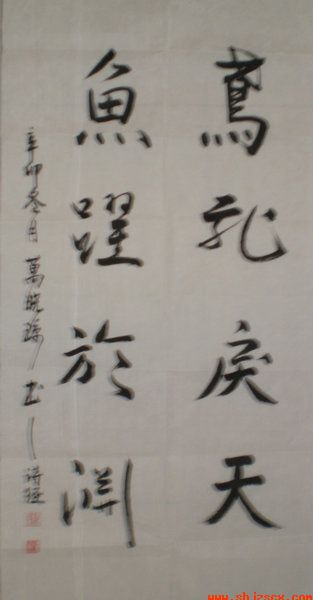 鳶飛戾天
魚躍於淵
辛卯冬月萬曉瑜書詩經
www.shjzscx.com